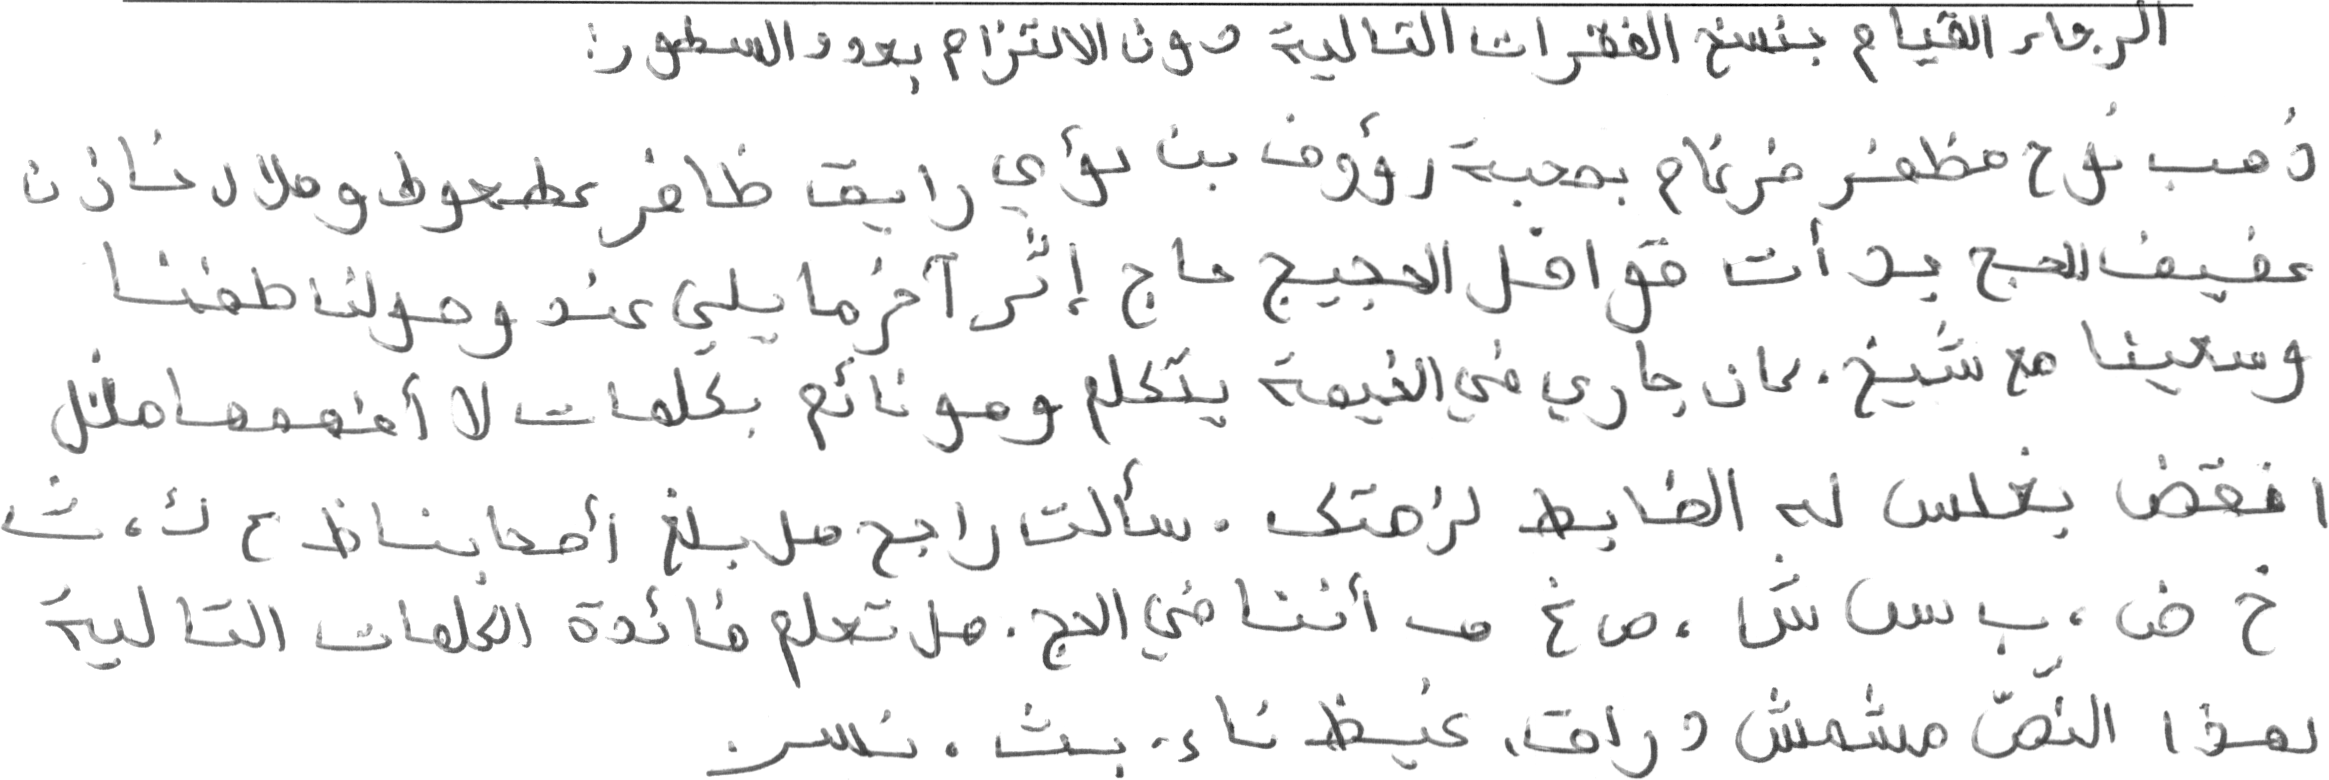 الرجاء القيام بنسخ الفقرات التالية دون الالتزام بعدد السطور:
ذهب نوح مظفر ضرغام بصحبة رؤوف بن لؤي رايق ظافر عطعوط وهلال خازن
عفيف الحج بدأت قوافل الحجيج حاج إثر آخر ما يلي عند وصولنا طفنا
وسعينا مع شيخ. كان جاري في الخيمة يتكلم وهو نائم بكلمات لا أفهمها مثل
افقض بغلس له الضابط لزهتك. سألت راجح هل بلغ أصحابنا ظ ع ك، ث
خ ض، ب س ش، ص غ ف أننا في الحج. هل تعلم فائدة الكلمات التالية
لهذا النصّ مشمش دراق، غيظ ناء. بث. نسر.